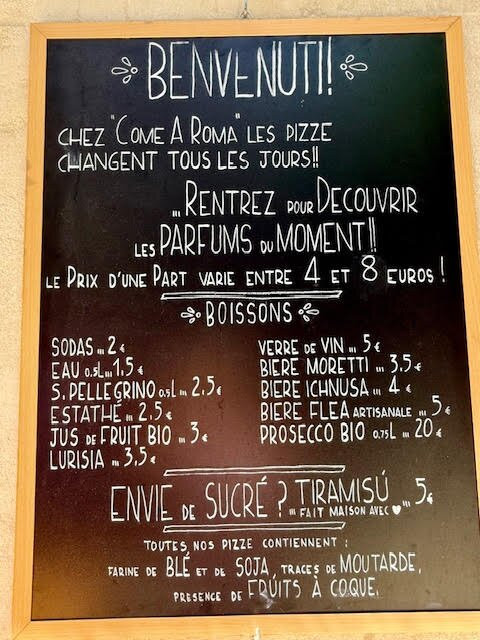 BENVENUTI!
CHEZ "COME A ROMA" LES PIZZE
CHANGENT TOUS LES JOURS!!
... RENTREZ POUR DECOUVRIR
LES PARFUMS DU MOMENT!!
LE PRIX D'UNE PART VARIE ENTRE 4 ET 8 EUROS !
BOISSONS
SODAS ... 2 €
EAU 0.5L ... 1,5 €
S. PELLEGRINO 0.5L ... 2,5 €
ESTATHÉ ... 2,5 €
JUS DE FRUIT BIO ... 3 €
LURISIA ... 3,5 €
VERRE DE VIN ... 5 €
BIERE MORETTI ... 3,5 €
BIERE ICHNUSA ... 4 €
BIERE FLEA ARTISANALE ... 5 €
PROSECCO BIO 0.75L ... 20 €
ENVIE DE SUCRÉ ? TIRAMISÚ ... 5 €
... FAIT MAISON AVEC ♥ ...
TOUTES NOS PIZZE CONTIENNENT :
FARINE DE BLÉ ET DE SOJA, TRACES DE MOUTARDE,
PRESENCE DE FRÚITS À COQUE.